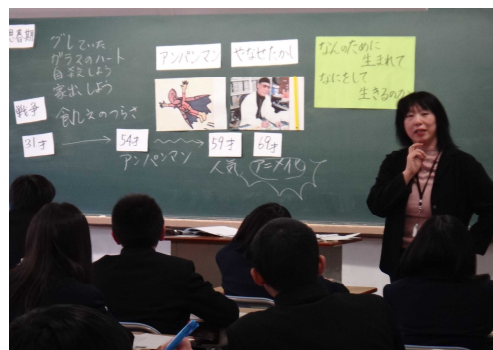 思春期
グレていた
グラスのハート
自殺しよう
家出しよう
戦争
飢えのつらさ
31才
54才
アンパンマン
アンパンマン
やなせたかし
59才
69才
人気
アニメ化
なんのために
生まれて
なにをして
生きるのか